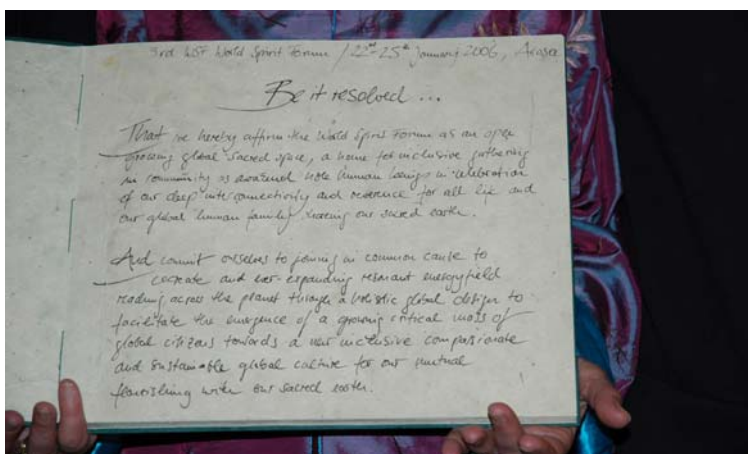 3rd WSF World Spirit Forum / 22nd-25th January 2006, Arosa
Be it resolved ...
That we hereby affirm the World Spirit Forum as an open
growing global sacred space, a home for inclusive gathering
in community as awakened whole human beings in celebration
of our deep interconnectivity and reverence for all life and
our global human family sharing our sacred earth.
And commit ourselves to joining in common cause to
cocreate and ever-expanding resonant energyfield
reaching across the planet through a holistic global design to
facilitate the emergence of a growing critical mass of
global citizens towards a new inclusive compassionate
and sustainable global culture for our mutual
flourishing with our sacred earth.